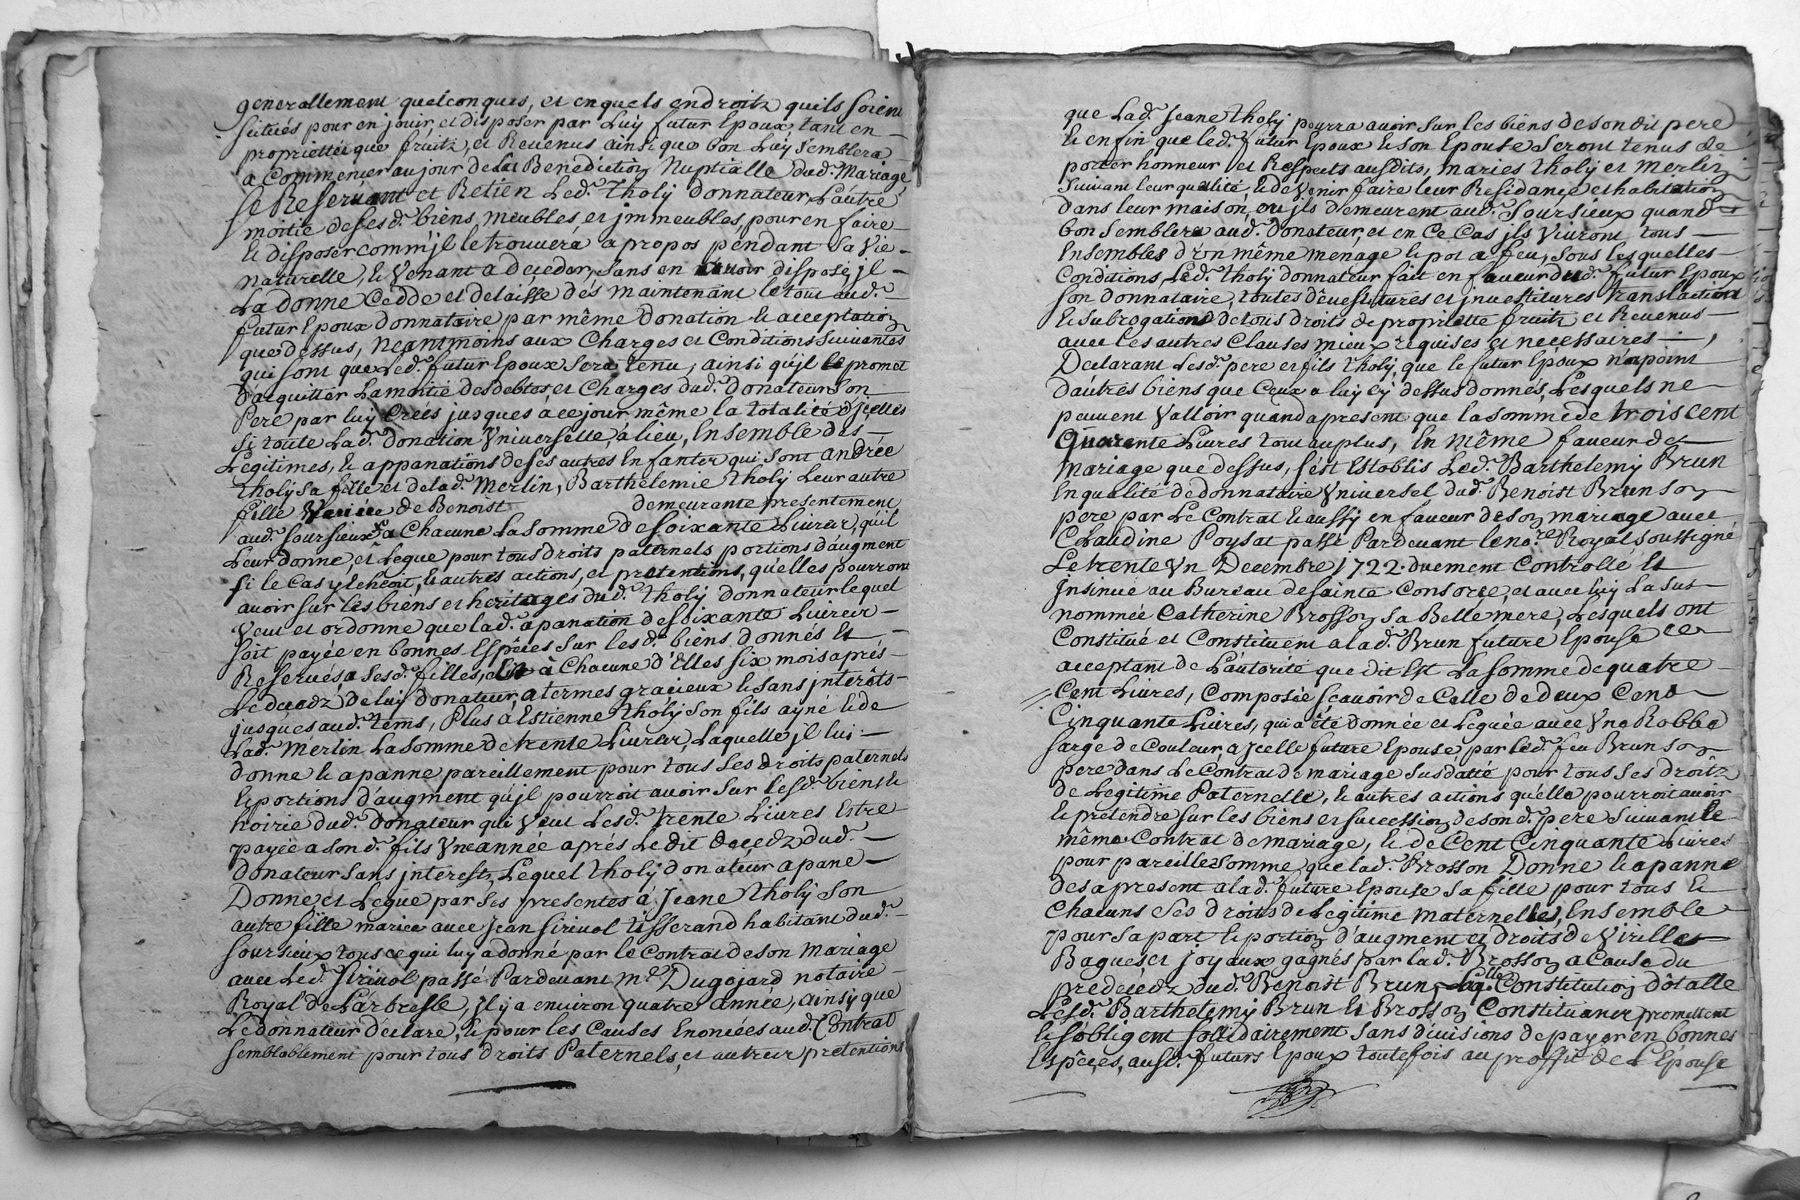 generallement quelconques, et en quels endroitz quils soient
scitués pour en jouir, et disposer par Luy futur Epoux, tant en
propriettée que fruitz, et Revenus ainsi que bon Luy semblera
a Commencer au jour de La Benediction Nuptialle dud. Mariage
se Reservant et Retien Led. tholy donnateur, Lautre
moitié de ses d. biens, meubles, et jmmeubles, pour en faire
et disposer comm'jl le trouvera a propos pendant sa Vie
naturelle, et Venant a deceder, sans en avoir disposé, jl
La donne Cedde et delaisse dés maintenant le tout aud.
futur Epoux donnataire par même donation et acceptation
que dessus, Neantmoins aux Charges et Conditions suivantes
qui sont que Led. futur Epoux sera tenu, ainsi qu'jl le promet
d'acquitter La moitié des debtes, et Charges dud. donateur son
Pere par luy Créés jusques a ce jour même la totalité d'Jcelles
si toute Lad. donation Vniverselle a lieu, Ensemble des
Legitimes, et appanations de ses autres Enfantz qui sont andrée
tholy sa fille et de lad. Merlin, Barthelemie tholy Leur autre
fille de Benoist demeurante presentement
aud. Soursieux a Chacune La somme de soixante Livrez, qu'il
Leur donne, et Legue pour tous droits paternels portions d'augment
si le Cas y Echeoit, et autres actions, et pretentions, quelles pourront
avoir sur les biens et heritages dud. tholy donnateur lequel
Veut et ordonne que lad. apanation de soixante Livrez
soit payée en bonnes Espêces sur les d. biens donnés Et
Reservés, a ses d. filles, à Chacune d'Elles six mois aprés
Le decedz de luy donateur, a termes gracieux et sans jnterêts
jusques aud. tems, Plus à Estienne tholy son fils ayné et de
Lad. Merlin La somme de trente Livrez, Laquelle jl lui
donne et apanne pareillement pour tous ses droits paternels
et portions d'augment qu'jl pourroit avoir sur lesd. biens et
hoirie dud. donateur qui Veut Lesd. trente Livres Estre
payée a son d. fils Vne année aprés Le dit decedz dud.
donateur sans jnterests, Lequel tholy donateur apane
Donne et Legue par ses presentes à Jeane tholy son
autre fille mariée avec Jean Sirivol tisserand habitant dud.
Soursieux tous ce qui luy a donné par le Contrat de son Mariage
avec Led. Sirivol passé Pardevant Me. Dugojard notaire
Royal de Larbresle, jl y a environ quatre année, ainsy que
Le donnateur declare, et pour les Causes Enoncées aud. Contrat
semblablement pour tous droits Paternels, et autres pretentions
que Lad. Jeane tholy pourra avoir sur les biens de son dit pere
et enfin que led. futur Epoux et son Epouse seront tenus de
porter honneur et Respects ausdits, mariés tholy et Merlin
suivant leur qualité, et de venir faire leur Residance et habitation
dans leur maison, ou jls demeurent aud. Soursieux quand
bon semblera aud. Donateur, et en Ce Cas jls Vivront tous
Ensembles d'un même menage et pot a feu, sous lesquelles
Conditions, Led. tholy donnateur fait en faveur dud. futur Epoux
son donnataire, toutes devestitures et jnvestitures translactions
et subrogations de tous droits de propriette fruitz et Revenus
avec les autres Clauses mieux requises et necessaires
Declarant Lesd. pere et fils tholy, que le futur Epoux n'a point
d'autres biens que Ceux a luy cy dessus donnés, Lesquels ne
peuvent Valloir quand a present que la somme de trois cent
quarente Livres tout au plus, En même faveur de
mariage que dessus, s'est Establis Led. Barthelemy Brun
En qualité de donnataire Vniversel dud. Benoist Brun son
pere par Le Contrat et aussy en faveur de son mariage avec
Claudine Poysat passé Pardevant le nore. Royal soussigné
Le trente Vn Decembre 1722. duement Controllé Et
jnsinué au Bureau de sainte Consorce, et avec luy La sus
nommée Catherine Brosson sa Belle mere, Lesquels ont
Constitué et Constituent a lad. Brun future Epouse ce
acceptant de L'autorité que dit Est La somme de quatre
Cent Livres, Composée sçavoir de Celle de deux Cent
Cinquante Livres, qui a été donnée et Leguée avec Vne Robbe
sarge de Couleur, a jcelle future Epouse par led. feu Brun son
pere dans Le Contrat de mariage susdatté pour tous ses droitz
de Legitime Paternelle, et autres actions quelle pourroit avoir
et pretendre sur les biens et succession de son d. pere suivant le
même Contrat de mariage, et de Cent Cinquante Livres
pour pareille somme, que lad. Brosson Donne et apanne
des a present a lad. future Epouse sa fille pour tous et
Chacuns ses droits de Legitime maternelle, Ensemble
pour sa part et portion d'augment et droits de Virilles
Bagues et joyaux gagnés par lad. Brosson a Cause du
predecedz dud. Benoist Brun, Laqlle. Constitution dôtalle
Lesd. Barthelemy Brun et Brosson Constituans promettent
et s'obligent sollidairement sans divisions de payer en bonnes
Espêces, ausd. futurs Epoux toutefois au proffit de L'Epouse